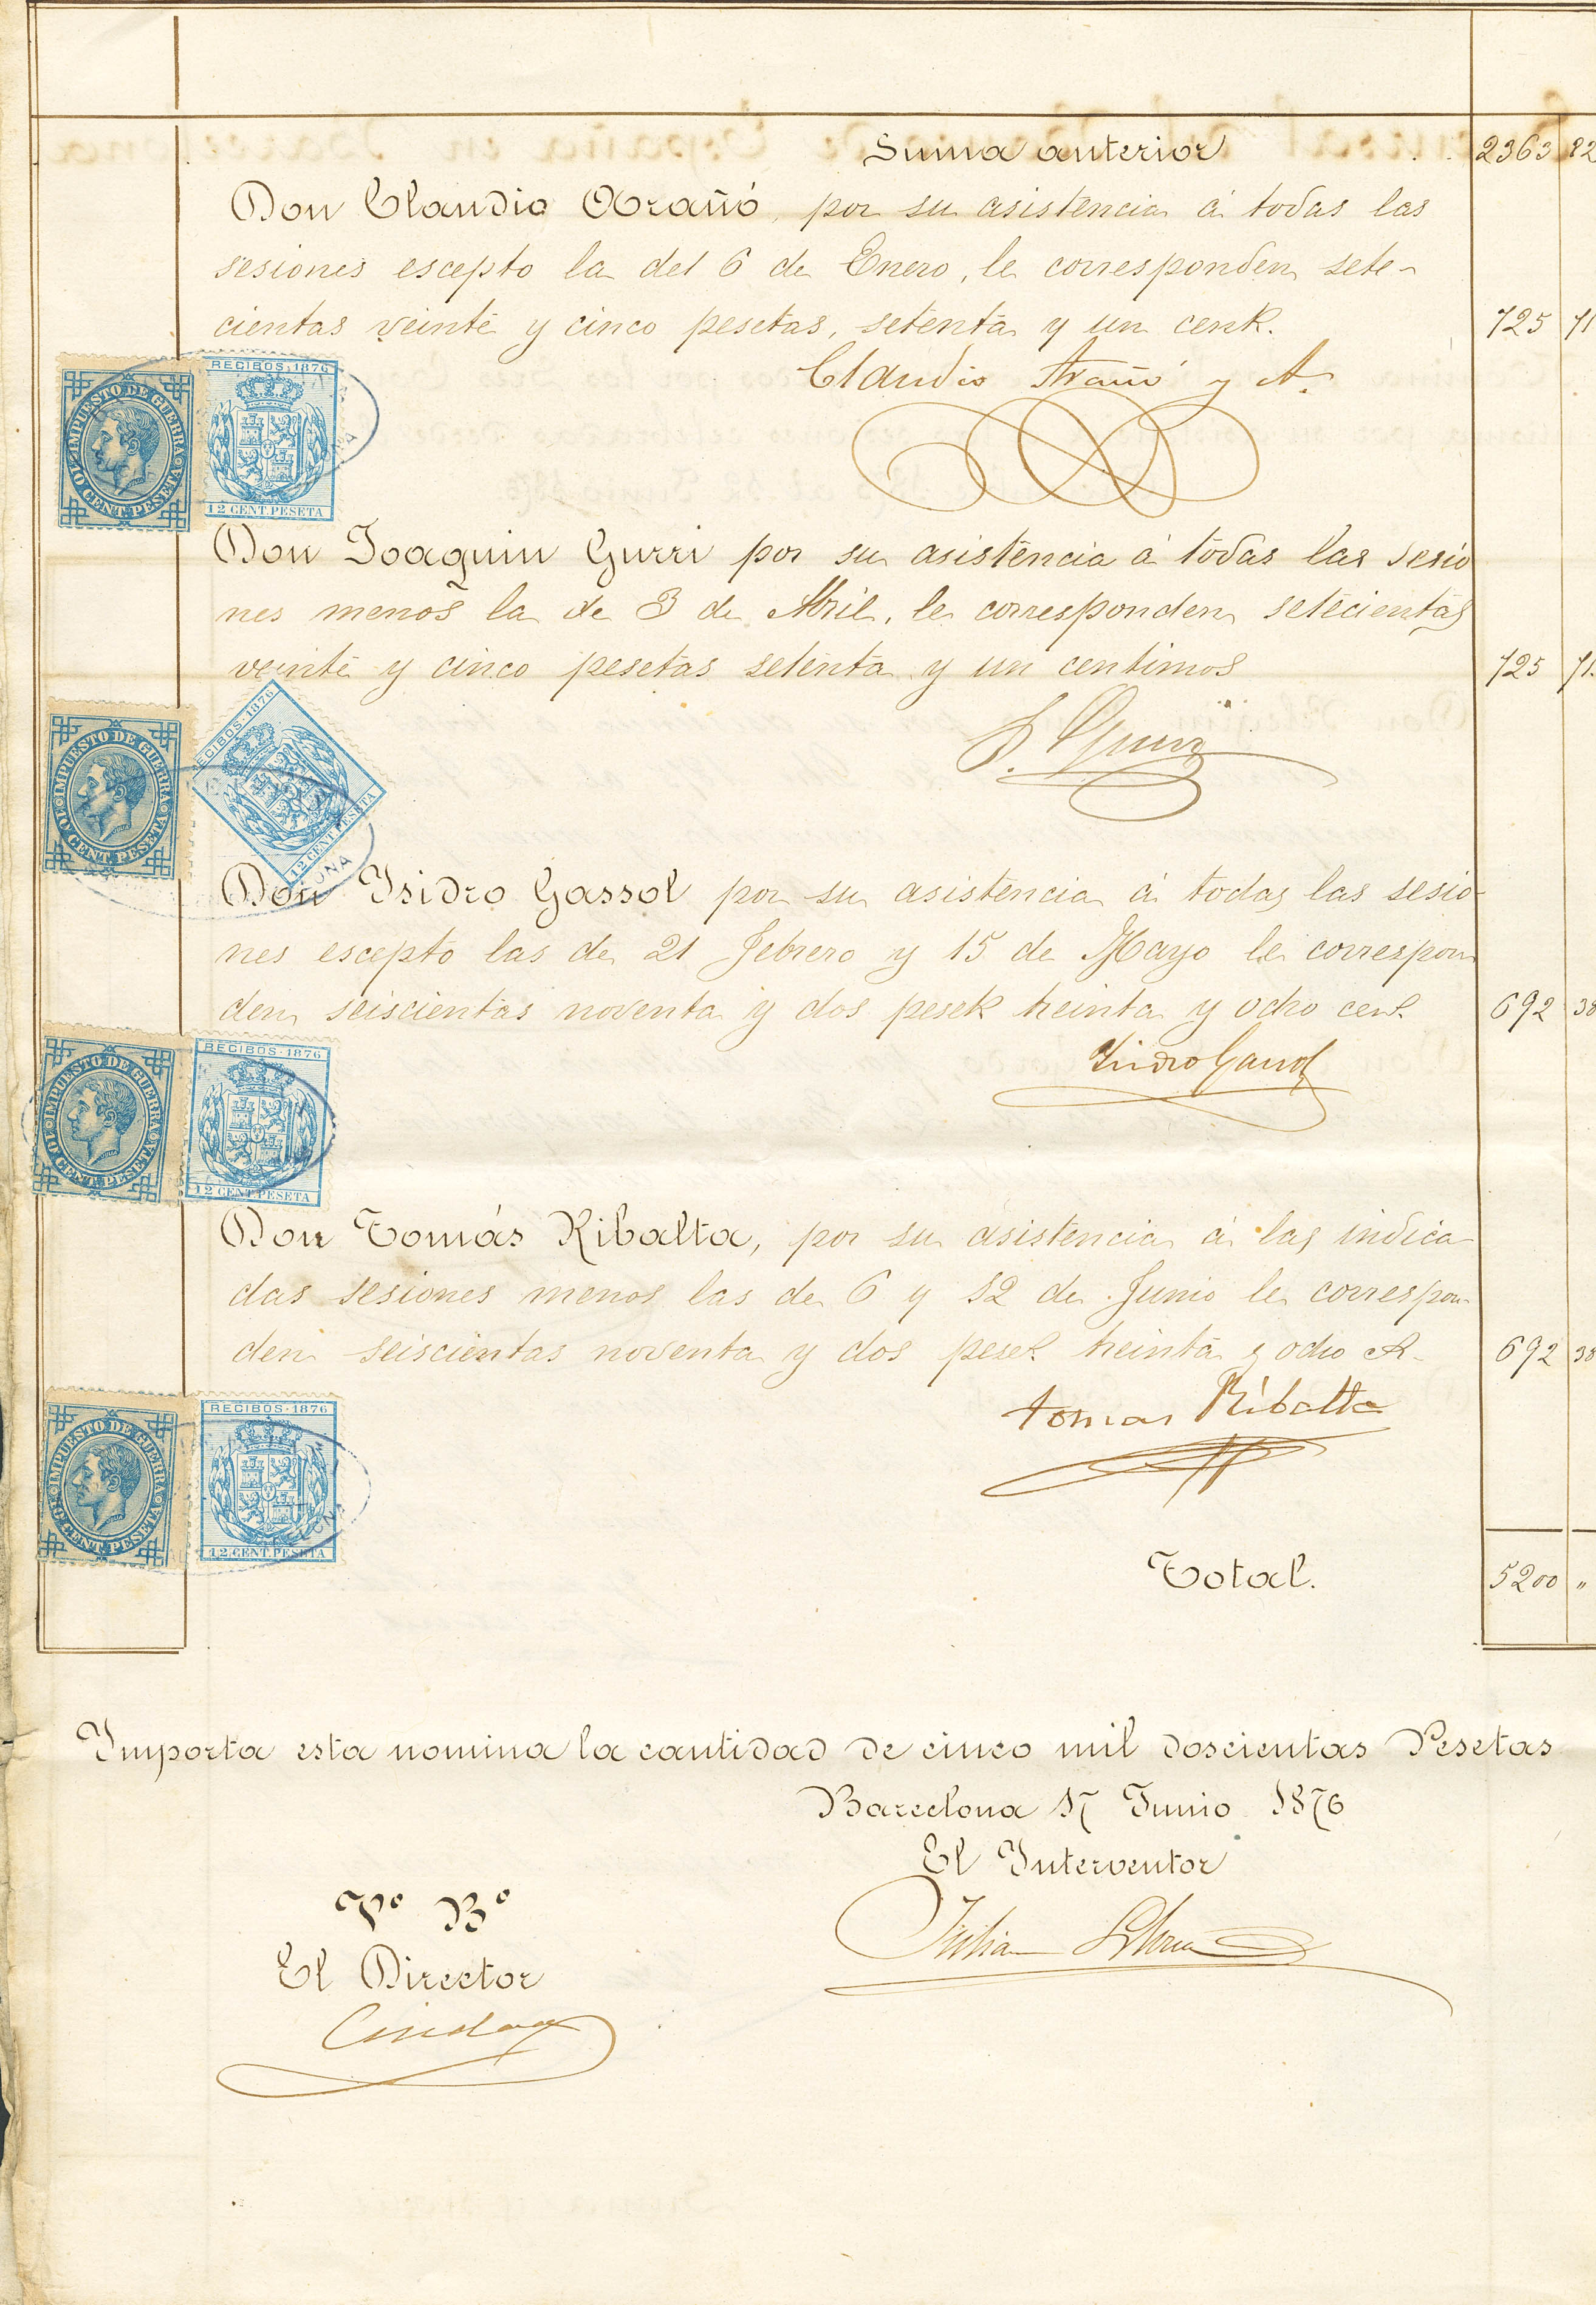 Suma anterior . . 2363 82
Don Claudio Arañó, por su asistencia á todas las
sesiones escepto la del 6 de Enero, le corresponden sete-
cientas veinte y cinco pesetas, setenta y un cent. 725 71
Claudio Arañó y A.
RECIBOS · 1876
IMPUESTO DE GUERRA
10 CENT. PESETA
12 CENT. PESETA
Don Joaquin Gurri por su asistencia á todas las sesio
nes menos la de 3 de Abril, le corresponden setecientas
veinte y cinco pesetas setenta y un centimos 725 71
J. Gurri
RECIBOS · 1876
IMPUESTO DE GUERRA
10 CENT. PESETA
12 CENT. PESETA
Don Isidro Gassol por su asistencia á todas las sesio
nes escepto las de 21 Febrero y 15 de Mayo le correspon
den seiscientas noventa y dos peset treinta y ocho cent. 692 38
Isidro Gassol
RECIBOS · 1876
IMPUESTO DE GUERRA
10 CENT. PESETA
12 CENT. PESETA
Don Tomás Ribalta, por su asistencia á las indica
das sesiones menos las de 6 y 12 de Junio le correspon
den seiscientas noventa y dos peset. treinta y ocho ct. 692 38
Tomas Ribalta
RECIBOS · 1876
IMPUESTO DE GUERRA
10 CENT. PESETA
12 CENT. PESETA
Total. 5200 "
Importa esta nomina la cantidad de cinco mil doscientas Pesetas
Barcelona 17 Junio 1876
El Interventor
Vº Bº
Julian
El Director